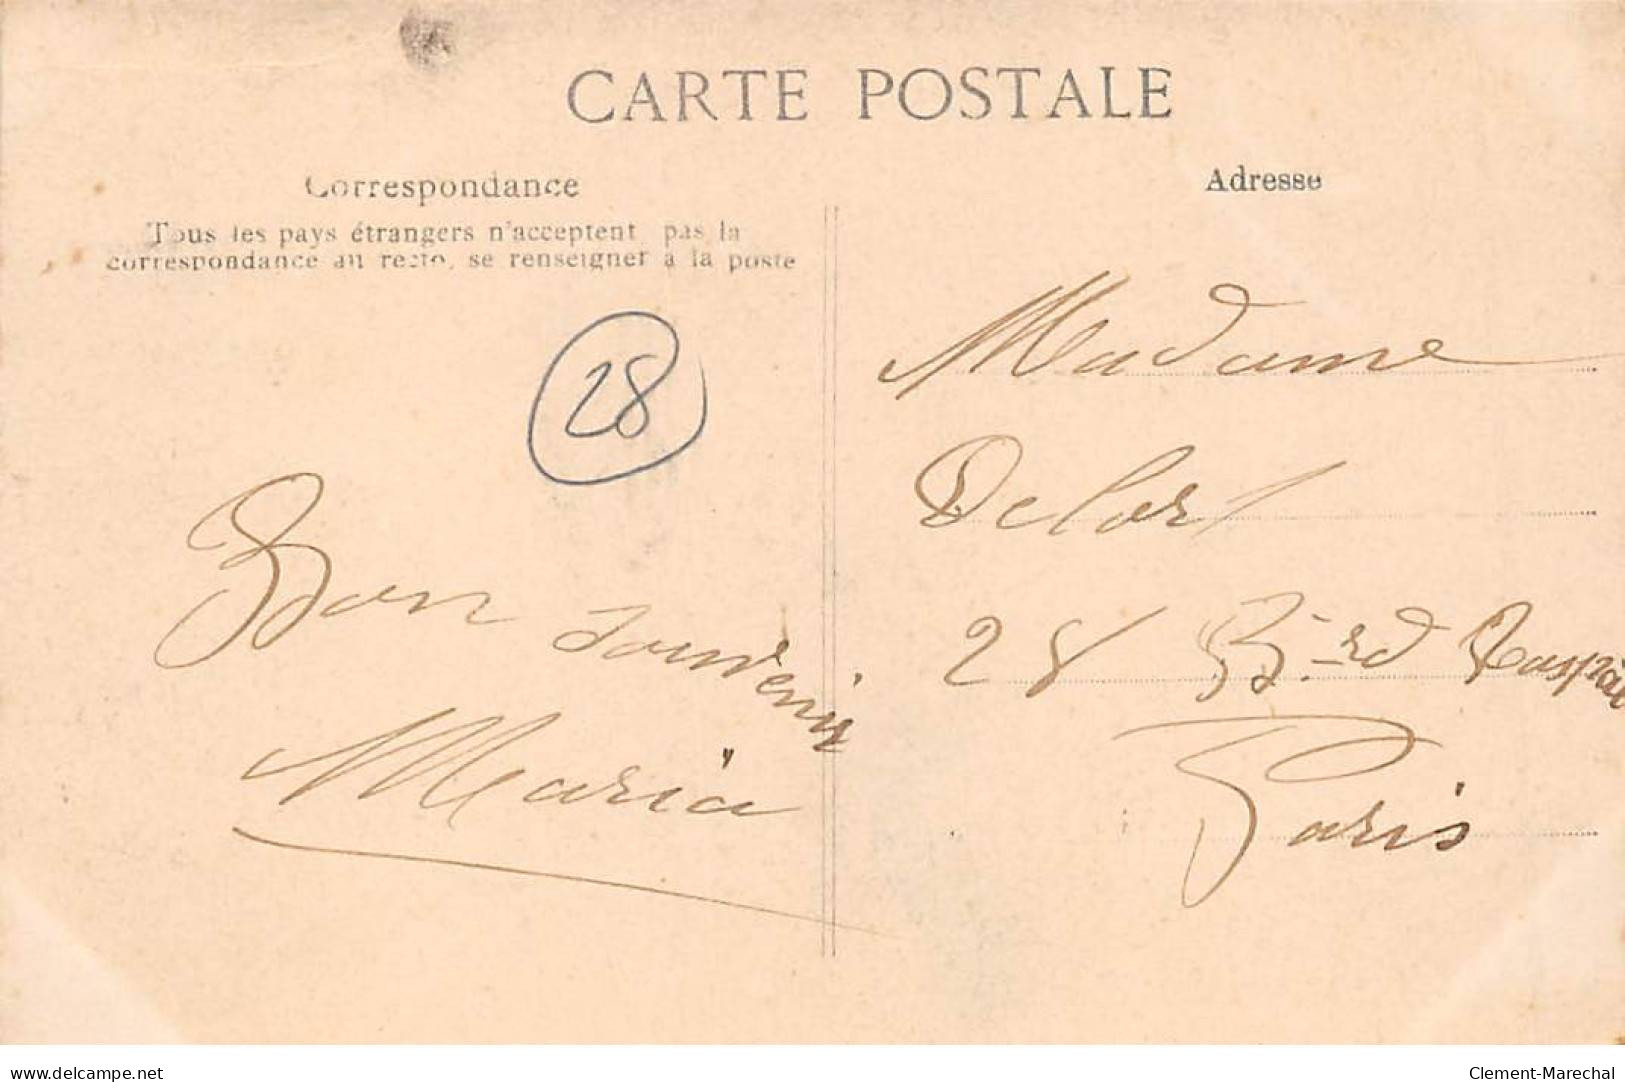 CARTE POSTALE
Correspondance
Tous les pays étrangers n'acceptent pas la
correspondance au recto, se renseigner à la poste
28
Bon souvenir
Maria
Adresse
Madame
Delort
28 B.rd Raspail
Paris
www.delcampe.net
Clement-Marechal